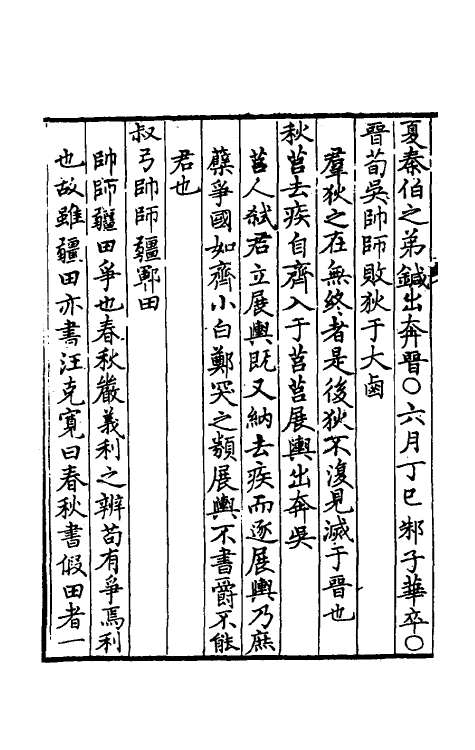 夏秦伯之弟鍼出奔晋○六月丁巳邾子華卒○
晋荀吳帥師敗狄于大鹵
羣狄之在無終者是後狄不復見滅于晋也
秋莒去疾自齊入于莒莒展輿出奔吳
莒人弑君立展輿既又納去疾而逐展輿乃庶
孽爭國如齊小白鄭突之類展輿不書爵不能
君也
叔弓帥師疆鄆田
帥師疆田爭也春秋嚴義利之辨苟有爭焉利
也故雖疆田亦書汪克寬曰春秋書假田者一